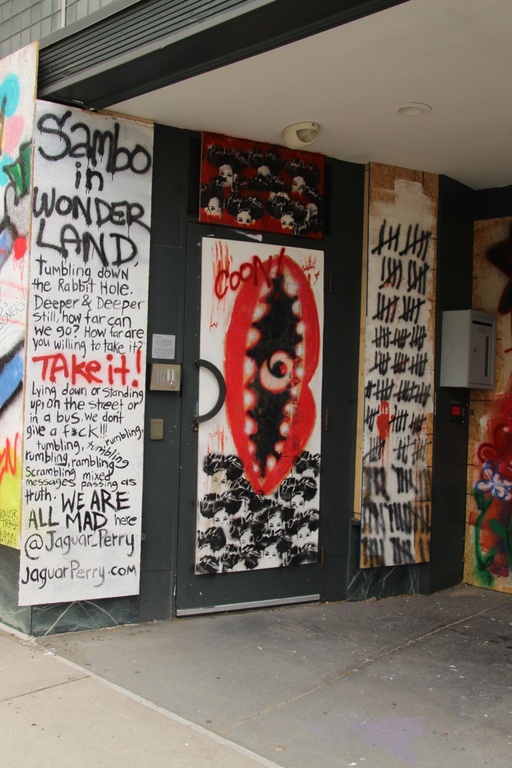 Sambo
in
WONDER
LAND
Tumbling down
the Rabbit Hole.
Deeper & Deeper
still, how far can
we go? How far are
you willing to take it?
TAKE iT!
Lying down or standing
up, on the street or
in a bus. we don't
give a f*ck!!!
tumbling, tumbling, rumbling,
rumbling, rambling
Scrambling mixed
messages passing as
truth. WE ARE
ALL MAD here
@JaguarPerry
JaguarPerry.com
COON!